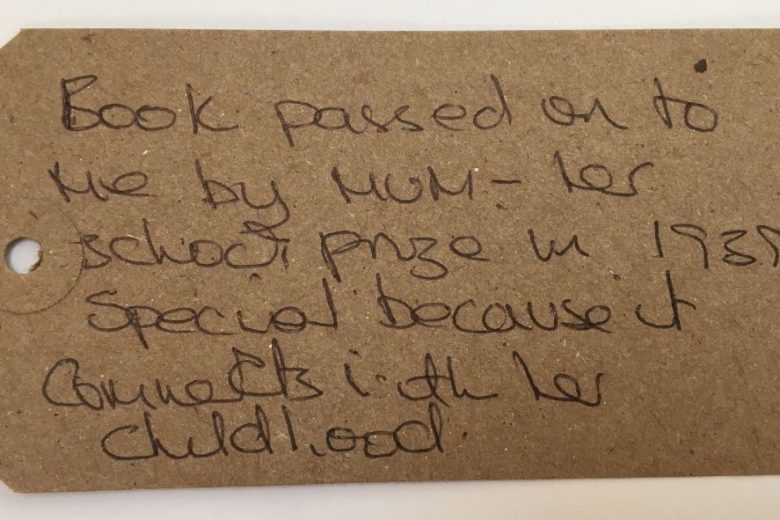 Book passed on to
me by MUM - her
school prize in 1939
Special because it
connects with her
childhood.